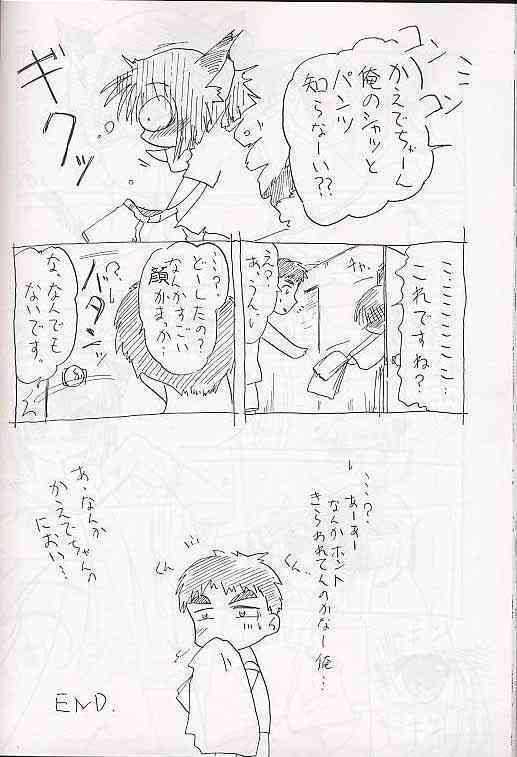 コンコン
かえでちゃーん
俺のシャツと
パンツ
知らなーい??
ギクッ
こここここここ…
これですね?
え?
あ、うん…
…?
どーしたの?
なんかすごい
顔がまっか…
バタンッ
な、なんでも
ないです。
…?
あーあー
なんかホント
きらわれてんのかなー俺…
くん…
くん
あ、なんか
かえでちゃんの
におい…
END.